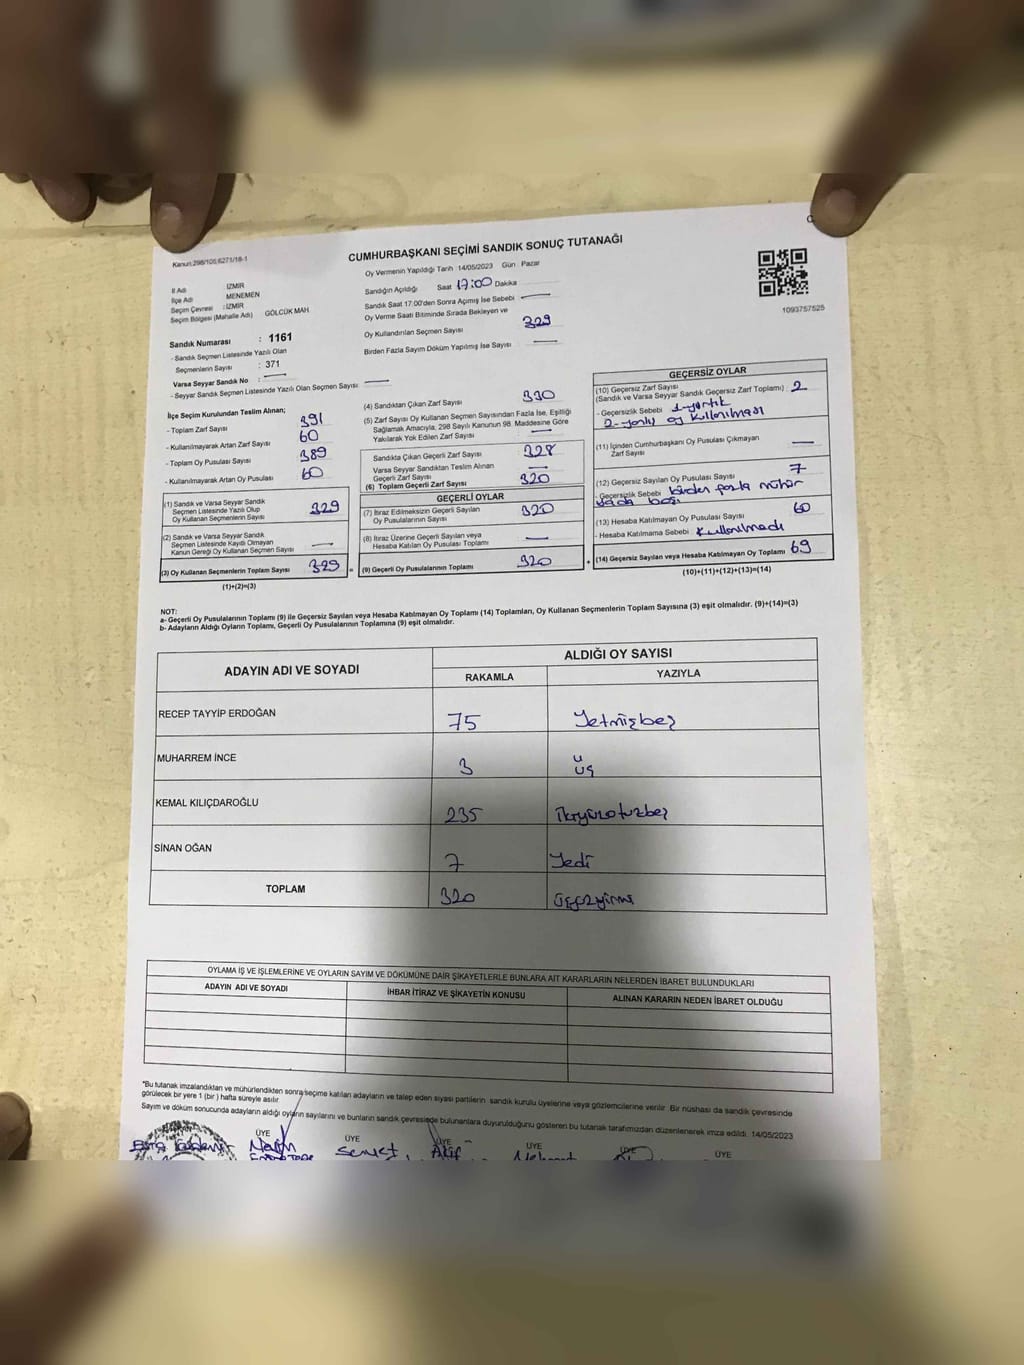 Kanun:298/105,6271/18-1
CUMHURBAŞKANI SEÇİMİ SANDIK SONUÇ TUTANAĞI
Oy Vermenin Yapıldığı Tarih 14/05/2023 Gün Pazar
İl Adı : İZMİR
İlçe Adı : MENEMEN
Seçim Çevresi : İZMİR
Seçim Bölgesi (Mahalle Adı) GÖLCÜK MAH.
Sandığın Açıldığı Saat 17:00 Dakika
Sandık Saat 17.00'den Sonra Açımış İse Sebebi —
Oy Verme Saati Bitiminde Sırada Bekleyen ve
Oy Kullandırılan Seçmen Sayısı 329
Birden Fazla Sayım Döküm Yapılmış İse Sayısı —
1093757525
Sandık Numarası : 1161
- Sandık Seçmen Listesinde Yazılı Olan
Seçmenlerin Sayısı : 371
Varsa Seyyar Sandık No : —
- Seyyar Sandık Seçmen Listesinde Yazılı Olan Seçmen Sayısı —
İlçe Seçim Kurulundan Teslim Alınan;
- Toplam Zarf Sayısı 391
- Kullanılmayarak Artan Zarf Sayısı 60
- Toplam Oy Pusulası Sayısı 389
- Kullanılmayarak Artan Oy Pusulası 60
(1) Sandık ve Varsa Seyyar Sandık
Seçmen Listesinde Yazılı Olup
Oy Kullanan Seçmenlerin Sayısı 329
(2) Sandık ve Varsa Seyyar Sandık
Seçmen Listesinde Kayıtlı Olmayan
Kanun Gereği Oy Kullanan Seçmen Sayısı —
(3) Oy Kullanan Seçmenlerin Toplam Sayısı 329
(1)+(2)=(3)
(4) Sandıktan Çıkan Zarf Sayısı 330
(5) Zarf Sayısı Oy Kullanan Seçmen Sayısından Fazla İse, Eşitliği
Sağlamak Amacıyla, 298 Sayılı Kanunun 98. Maddesine Göre
Yakılarak Yok Edilen Zarf Sayısı —
Sandıkta Çıkan Geçerli Zarf Sayısı 328
Varsa Seyyar Sandıktan Teslim Alınan
Geçerli Zarf Sayısı —
(6) Toplam Geçerli Zarf Sayısı 320
GEÇERLİ OYLAR
(7) İtiraz Edilmeksizin Geçerli Sayılan
Oy Pusulalarının Sayısı 320
(8) İtiraz Üzerine Geçerli Sayılan veya
Hesaba Katılan Oy Pusulası Toplamı —
(9) Geçerli Oy Pusulalarının Toplamı 320
GEÇERSİZ OYLAR
(10) Geçersiz Zarf Sayısı
(Sandık ve Varsa Seyyar Sandık Geçersiz Zarf Toplamı) : 2
- Geçersizlik Sebebi 1-yırtık
2-yanlış oy kullanılması
(11) İçinden Cumhurbaşkanı Oy Pusulası Çıkmayan
Zarf Sayısı —
(12) Geçersiz Sayılan Oy Pusulası Sayısı 7
- Geçersizlik Sebebi birden fazla mühür
yada boş
(13) Hesaba Katılmayan Oy Pusulası Sayısı 60
- Hesaba Katılmama Sebebi Kullanılmadı
(14) Geçersiz Sayılan veya Hesaba Katılmayan Oy Toplamı 69
(10)+(11)+(12)+(13)=(14)
NOT:
a- Geçerli Oy Pusulalarının Toplamı (9) ile Geçersiz Sayılan veya Hesaba Katılmayan Oy Toplamı (14) Toplamları, Oy Kullanan Seçmenlerin Toplam Sayısına (3) eşit olmalıdır. (9)+(14)=(3)
b- Adayların Aldığı Oyların Toplamı, Geçerli Oy Pusulalarının Toplamına (9) eşit olmalıdır.
ADAYIN ADI VE SOYADI ALDIĞI OY SAYISI
RAKAMLA YAZIYLA
RECEP TAYYİP ERDOĞAN 75 Yetmişbeş
MUHARREM İNCE 3 üç
KEMAL KILIÇDAROĞLU 235 İkiyüzotuzbeş
SİNAN OĞAN 7 Yedi
TOPLAM 320 üçyüzyirmi
OYLAMA İŞ VE İŞLEMLERİNE VE OYLARIN SAYIM VE DÖKÜMÜNE DAİR ŞİKAYETLERLE BUNLARA AİT KARARLARIN NELERDEN İBARET BULUNDUKLARI
ADAYIN ADI VE SOYADI İHBAR İTİRAZ VE ŞİKAYETİN KONUSU ALINAN KARARIN NEDEN İBARET OLDUĞU
*Bu tutanak imzalandıktan ve mühürlendikten sonra seçime katılan adayların ve talep eden siyasi partilerin sandık kurulu üyelerine veya gözlemcilerine verilir. Bir nüshası da sandık çevresinde
görülecek bir yere 1 (bir) hafta süreyle asılır.
Sayım ve döküm sonucunda adayların aldığı oyların sayılarını ve bunların sandık çevresinde bulunanlara duyurulduğunu gösteren bu tutanak tarafımızdan düzenlenerek imza edildi. 14/05/2023
ÜYE ÜYE ÜYE ÜYE ÜYE ÜYE
Akif Mehmet